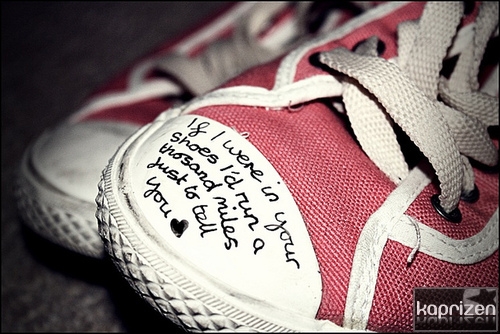 If I were in your
shoes I'd run a
thosand miles
just to tell
you ♥
kaprizen